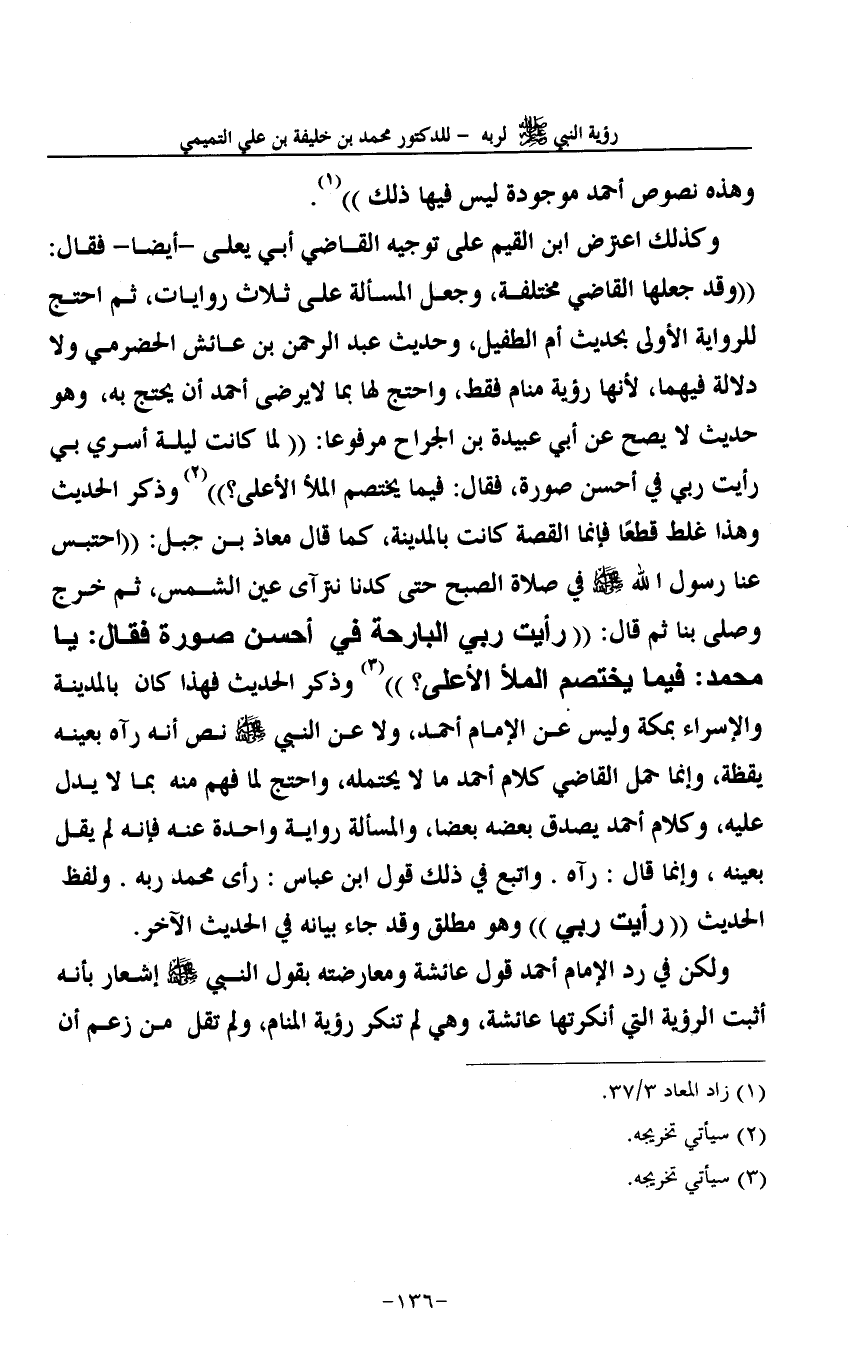 رؤية النبي ﷺ لربه - للدكتور محمد بن خليفة بن علي التميمي
وهذه نصوص أحمد موجودة ليس فيها ذلك ))(١).
وكذلك اعترض ابن القيم على توجيه القاضي أبي يعلى -أيضا- فقال:
((وقد جعلها القاضي مختلفة، وجعل المسألة على ثلاث روايات، ثم احتج
للرواية الأولى بحديث أم الطفيل، وحديث عبد الرحمن بن عائش الحضرمي ولا
دلالة فيهما، لأنها رؤية منام فقط، واحتج لها بما لايرضى أحمد أن يحتج به، وهو
حديث لا يصح عن أبي عبيدة بن الجراح مرفوعا: (( لما كانت ليلة أسري بي
رأيت ربي في أحسن صورة، فقال: فيما يختصم الملأ الأعلى؟))(٢) وذكر الحديث
وهذا غلط قطعًا فإنما القصة كانت بالمدينة، كما قال معاذ بن جبل: ((احتبس
عنا رسول الله ﷺ في صلاة الصبح حتى كدنا نترآى عين الشمس، ثم خرج
وصلى بنا ثم قال: (( رأيت ربي البارحة في أحسن صورة فقال: يا
محمد: فيما يختصم الملأ الأعلى؟ ))(٣) وذكر الحديث فهذا كان بالمدينة
والإسراء بمكة وليس عن الإمام أحمد، ولا عن النبي ﷺ نص أنه رآه بعينه
يقظة، وإنما حمل القاضي كلام أحمد ما لا يحتمله، واحتج لما فهم منه بما لا يدل
عليه، وكلام أحمد يصدق بعضه بعضا، والمسألة رواية واحدة عنه فإنه لم يقل
بعينه ، وإنما قال : رآه . واتبع في ذلك قول ابن عباس : رأى محمد ربه . ولفظ
الحديث (( رأيت ربي )) وهو مطلق وقد جاء بيانه في الحديث الآخر.
ولكن في رد الإمام أحمد قول عائشة ومعارضته بقول النبي ﷺ إشعار بأنه
أثبت الرؤية التي أنكرتها عائشة، وهي لم تنكر رؤية المنام، ولم تقل من زعم أن
(١) زاد المعاد ٣٧/٣.
(٢) سيأتي تخريجه.
(٣) سيأتي تخريجه.
-١٣٦-